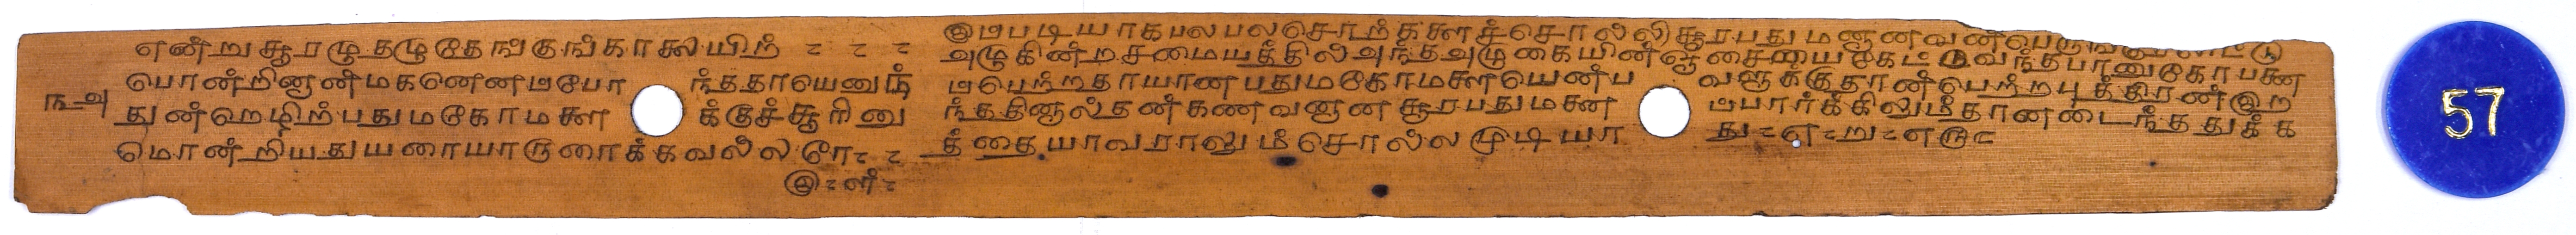 என்றுசூரழுதழுதேங்குங்காலையிற் - - -
பொன்றினுன்மகனெனப்போந்ததாயெனுந்
ந௮ துன்றெழிற்பதுமகோமளைக்குச்சூரினு
மொன்றியதுயரையாருரைக்கவல்லரே - -
இ-ள்-
இப்படியாகபலபலசொற்களைச்சொல்லிசூரபதுமனானவன்
அழுகின்றசமையத்தில்அந்தஅழுகையின்ஓசையைகேட்டுவந்தபானுகோபனை
ப்பெற்றதாயானபதுமகோமளையென்பவளுக்குதான்பெற்றபுத்திரன்இற
ந்ததினால்தன்கணவனானசூரபதுமனைப்பார்க்கிலும்தானடைந்ததுக்க
த்தையாவராலும்சொல்லமுடியாது-எ-று-எரு-
57